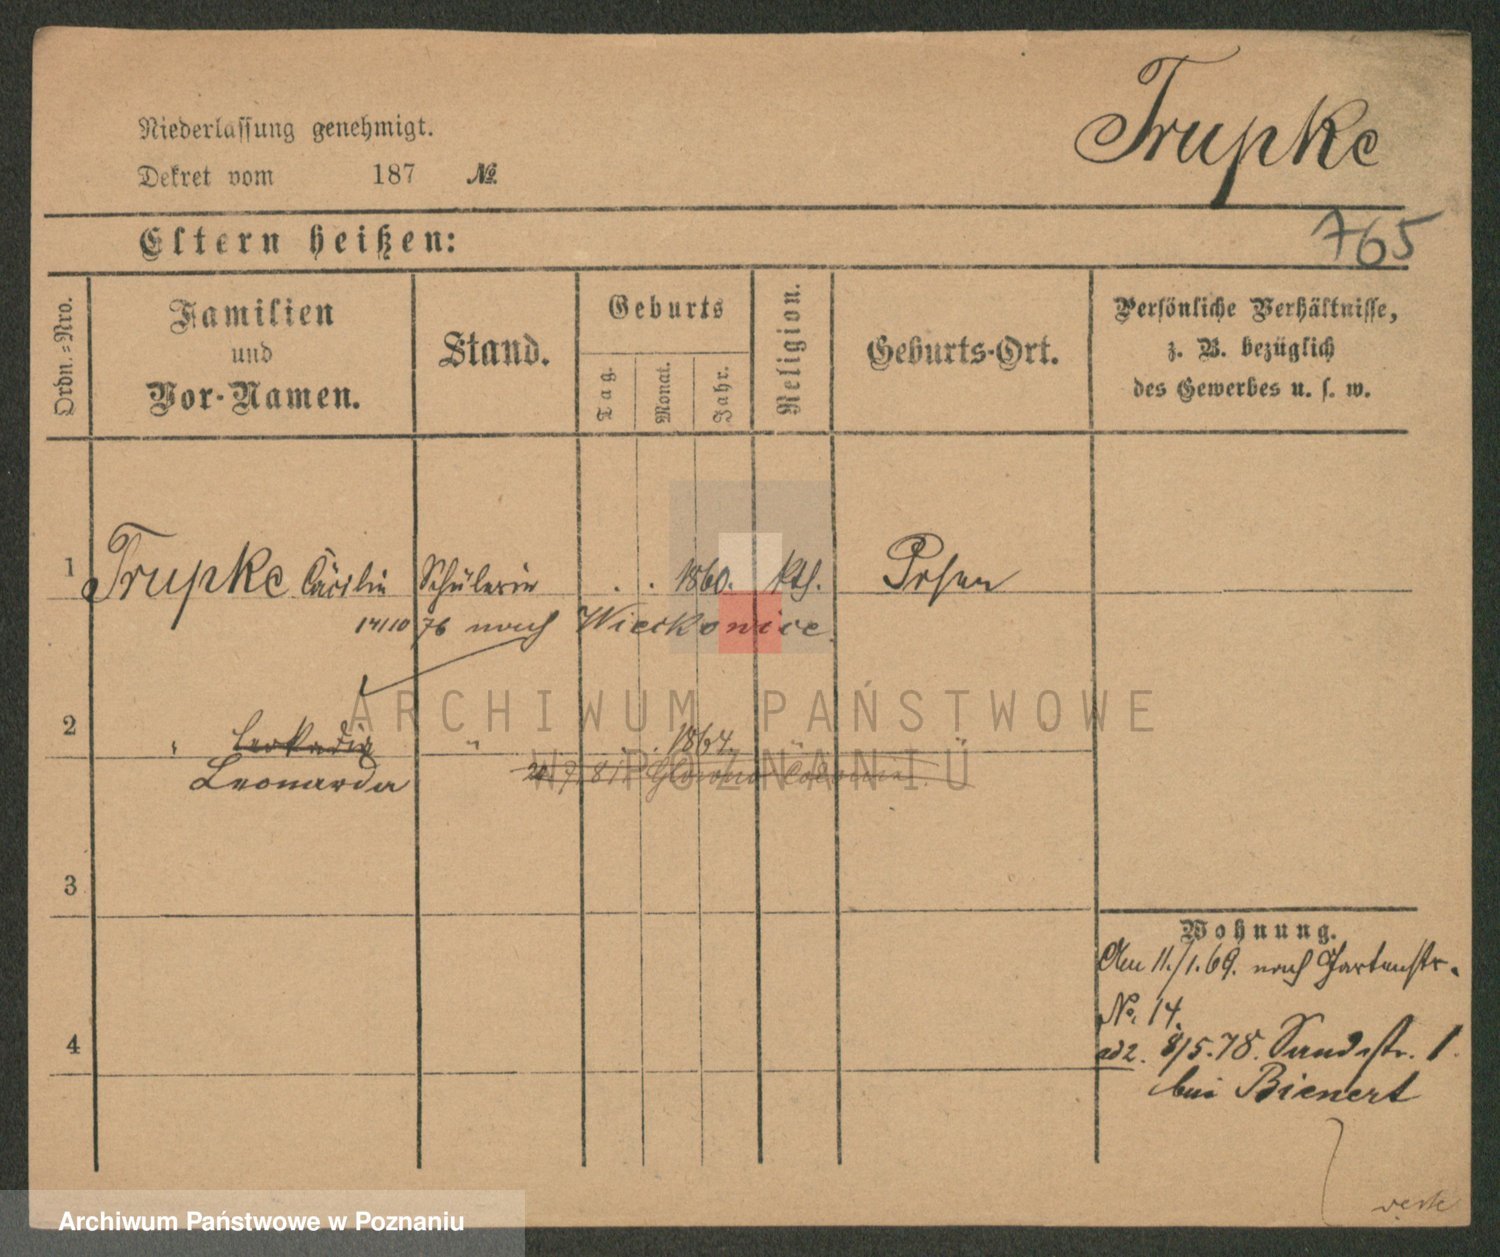 Trupke
Niederlassung genehmigt.
Dekret vom 187 №
765
Eltern heißen:
Ordn.=Nro.
Familien
und
Vor-Namen.
Stand.
Geburts
Tag.
Monat.
Jahr.
Religion.
Geburts-Ort.
Persönliche Verhältnisse,
z. B. bezüglich
des Gewerbes u. s. w.
1 Trupke Cäcilie Schülerin . . 1860. kth. Posen
14/10 76 nach Wieckowice.
2 " Leokadia " . . 1864. " "
Leonarda
3
4
Wohnung.
Am 11./1.69. nach Gartenstr.
No. 14.
ad 2. 8/5.78. Sandstr. 1.
bei Bienert
ARCHIWUM PAŃSTWOWE
W POZNANIU
Archiwum Państwowe w Poznaniu